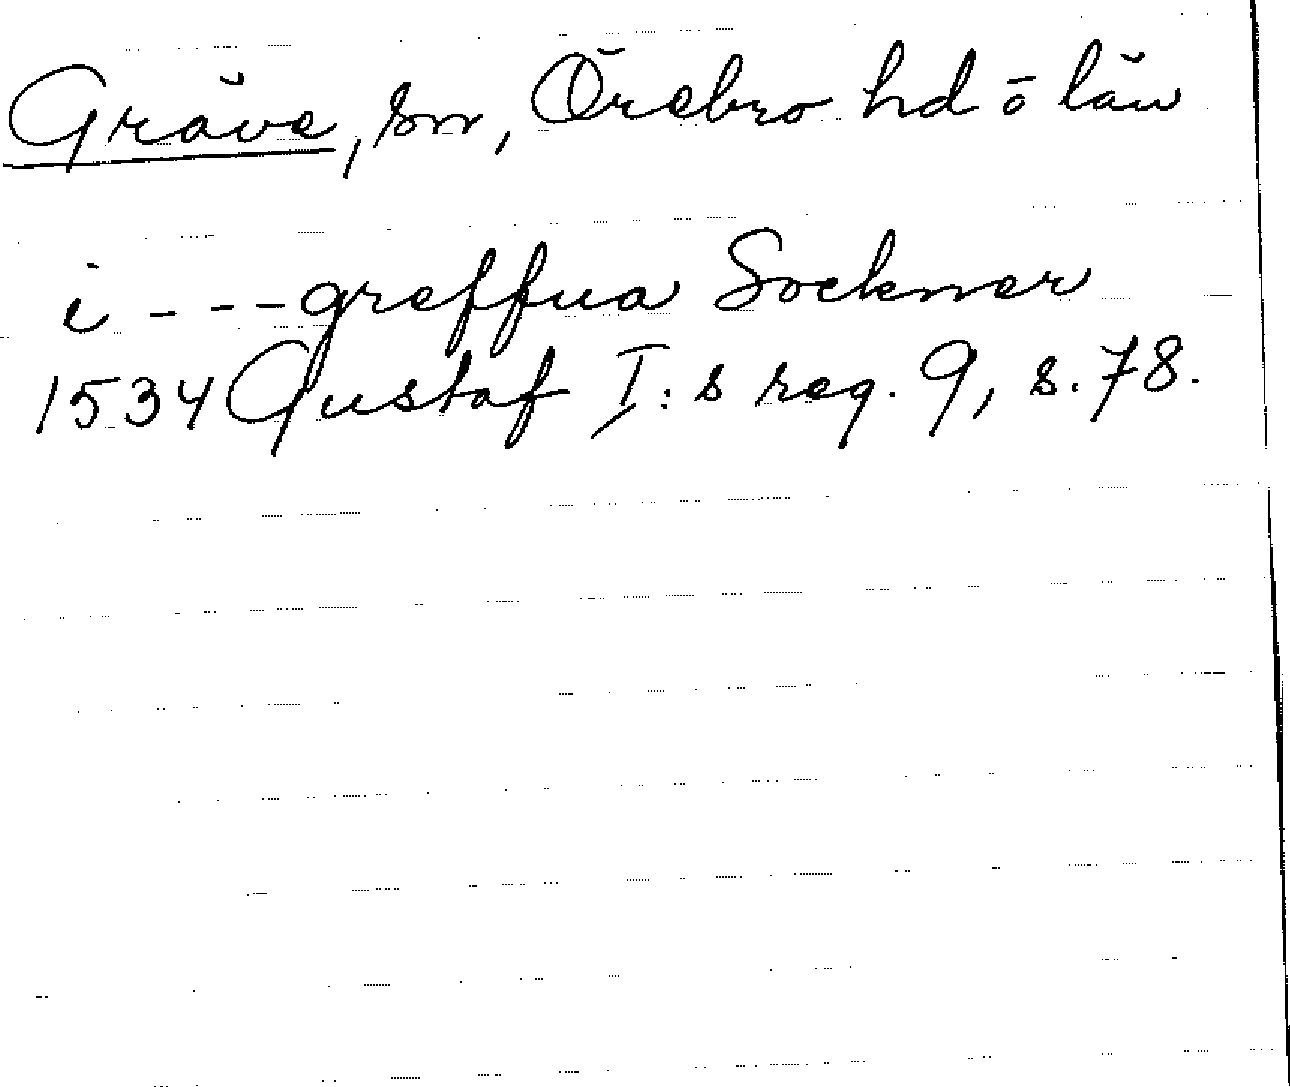 Gräve, sn, Örebro hd ō län
i - - - greffua Socknar
1534 Gustaf I:s reg. 9, s. 78.